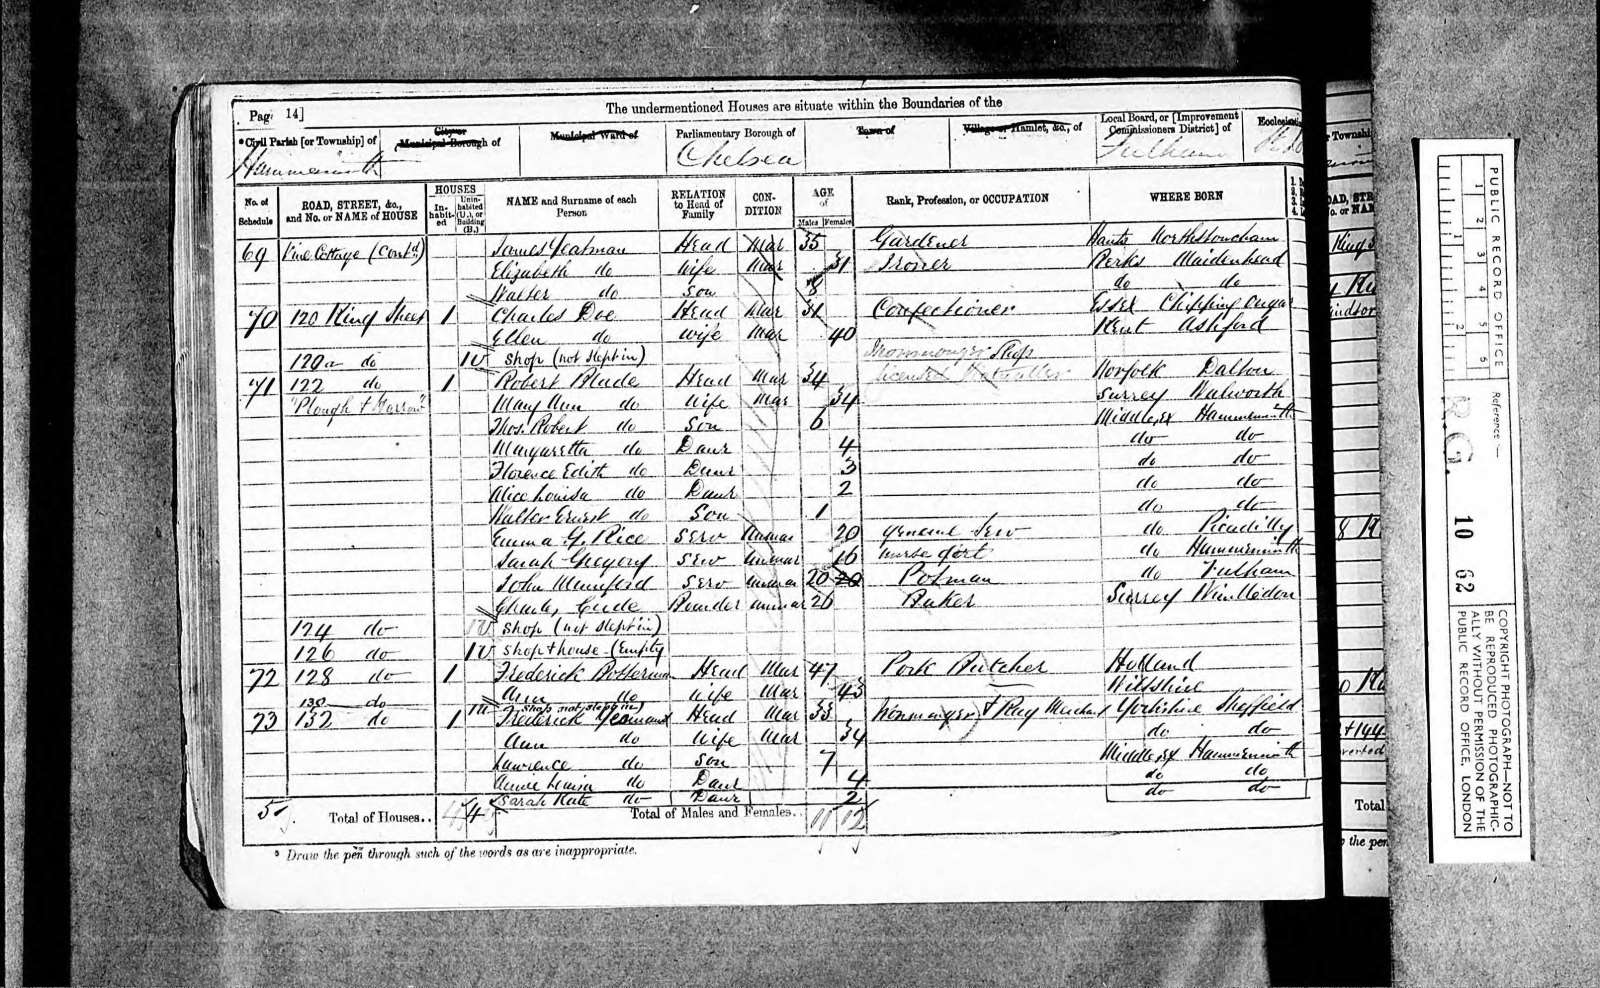 Page 14]
The undermentioned Houses are situate within the Boundaries of the
*Civil Parish [or Township] of
City or Municipal Borough of
Municipal Ward of
Parliamentary Borough of
Town of
Village or Hamlet, &c., of
Local Board, or [Improvement Commissioners District] of
Ecclesiastic
Hammersmith
Chelsea
Fulham
No. of Schedule
ROAD, STREET, &c., and No. or NAME of HOUSE
HOUSES
Inhabited
Uninhabited (U.), or Building (B.)
NAME and Surname of each Person
RELATION to Head of Family
CONDITION
AGE of
Males
Females
Rank, Profession, or OCCUPATION
WHERE BORN
69 Vine Cottage (Contd) James Yeatman Head Mar 35 Gardener Hants
Elizabeth do Wife Mar 31 Ironer Berks Maidenhead
Walter do Son 8 do do
70 120 King Street 1 Charles Doe Head Mar 31 Confectioner Essex Chipping Ongar
Ellen do Wife Mar 40 Kent Ashford
120a do 1U Shop (not slept in) Ironmongers Shop
71 122 do 1 Robert Blade Head Mar 34 Licensed Victualler Norfolk Dalton
"Plough & Harrow" Mary Ann do Wife Mar 34 Surrey Walworth
Thos. Robert do Son 6 Middlesex Hammersmith
Margaretta do Daur 4 do do
Florence Edith do Daur 3 do do
Alice Louisa do Daur 2 do do
Walter Ernest do Son 1 do do
Emma G. Rice Serv Unmar 20 General Serv do Picadilly
Sarah Gregory Serv Unmar 16 Nurse Girl do Hammersmith
John Mumford Serv Unmar 20 20 Potman do Fulham
Charles Eude Boarder Unmar 26 Baker Surrey Wimbledon
124 do 1U Shop (not slept in)
126 do 1U Shop & house (Empty
72 128 do 1 Frederick Head Mar 47 Pork Butcher Holland
Ann do Wife Mar 43 Wiltshire
130 do 1U Shop not slept in)
73 132 do 1 Frederick Head Mar 33 Ironmonger & Rag Merchant Yorkshire Sheffield
Ann do Wife Mar 34 do do
Lawrence do Son 7 Middlesex Hammersmith
Annie Louisa do Daur 4 do do
Sarah Kate do Daur 2 do do
5 Total of Houses.. 4 Total of Males and Females.. 11 12
* Draw the pen through such of the words as are inappropriate.
King S
indsor
Total
the pen
PUBLIC RECORD OFFICE
Reference:-
R.G. 10 62
COPYRIGHT PHOTOGRAPH—NOT TO
BE REPRODUCED PHOTOGRAPHIC-
ALLY WITHOUT PERMISSION OF THE
PUBLIC RECORD OFFICE, LONDON